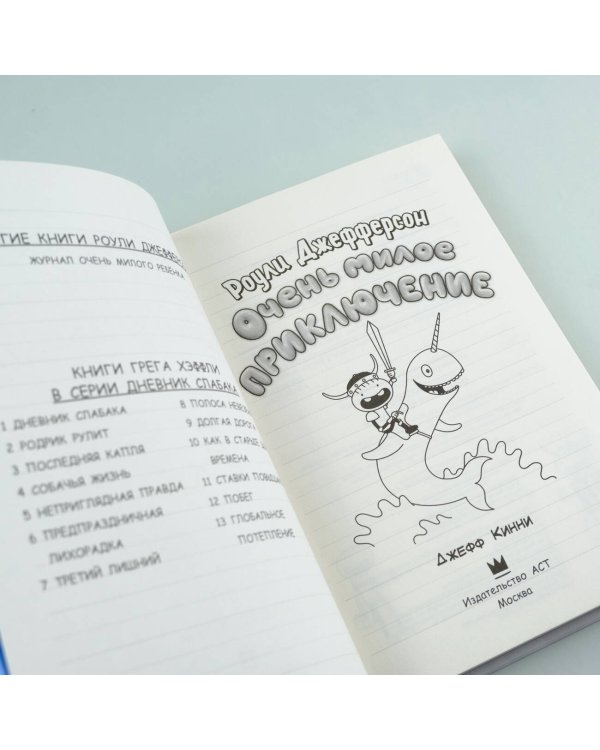 КНИГИ РОУЛИ
ЖУРНАЛ ОЧЕНЬ МИЛОГО РЕБЁНКА
КНИГИ ГРЕГА ХЭФФЛИ
В СЕРИИ ДНЕВНИК СЛАБАКА
1 ДНЕВНИК СЛАБАКА
2 РОДРИК РУЛИТ
3 ПОСЛЕДНЯЯ КАПЛЯ
4 СОБАЧЬЯ ЖИЗНЬ
5 НЕПРИГЛЯДНАЯ ПРАВДА
6 ПРЕДПРАЗДНИЧНАЯ
ЛИХОРАДКА
7 ТРЕТИЙ ЛИШНИЙ
8 ПОЛОСА
9 ДОЛГАЯ ДОРОГА
10 КАК В СТАРЫЕ
ВРЕМЕНА
11 СТАВКИ
12 ПОБЕГ
13 ГЛОБАЛЬНОЕ
ПОТЕПЛЕНИЕ
Роули Джефферсон
Очень милое
приключение
Джефф Кинни
Издательство АСТ
Москва